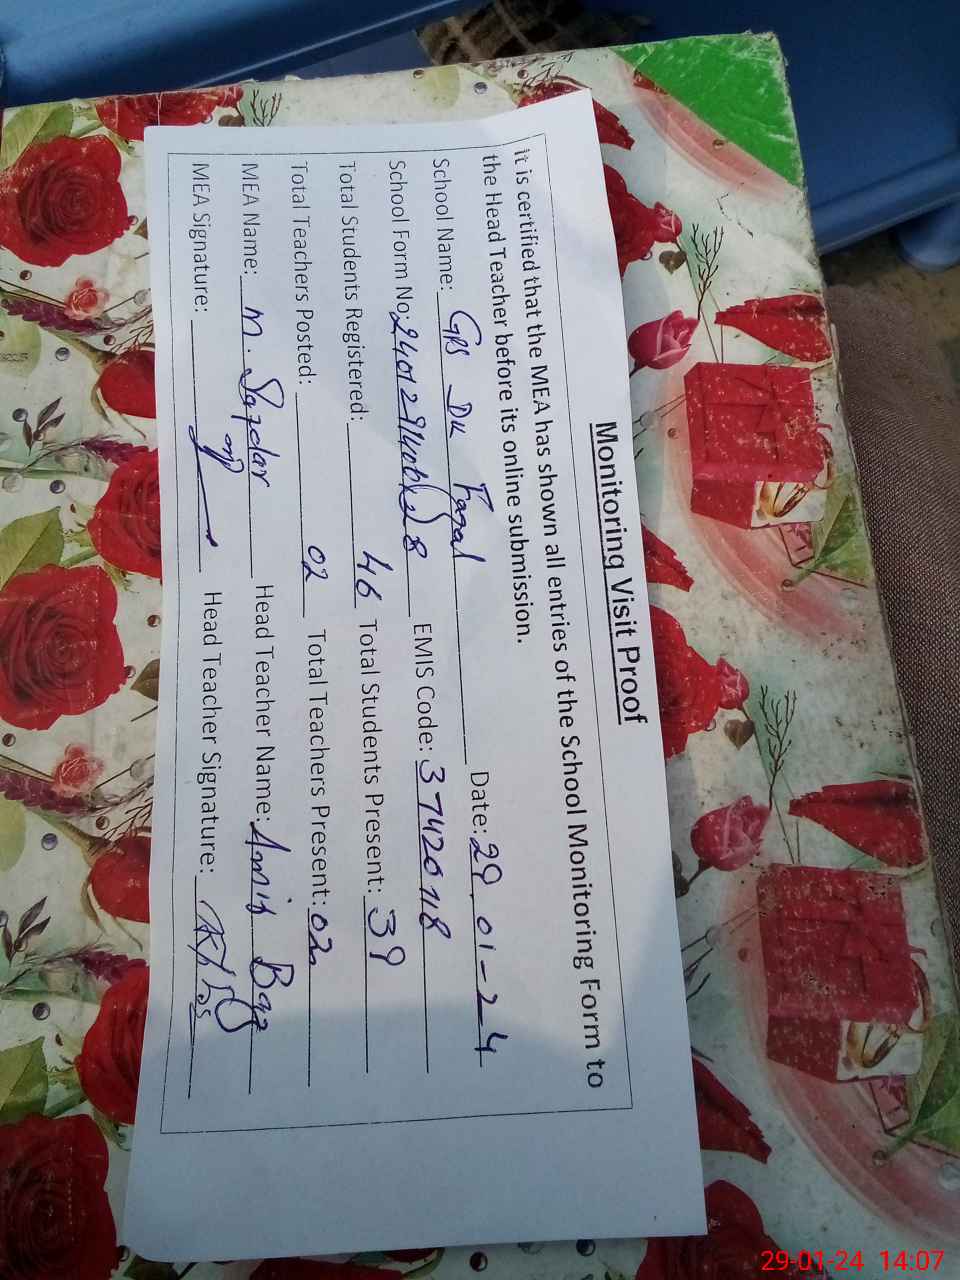 Monitoring Visit Proof
it is certified that the MEA has shown all entries of the School Monitoring Form to
the Head Teacher before its online submission.
School Name: GPS Du Fazal Date: 29-01-24
School Form No: EMIS Code: 37420718
Total Students Registered: 46 Total Students Present: 39
Total Teachers Posted: 02 Total Teachers Present: 02
MEA Name: M. Safdar Head Teacher Name: Amir Baz
MEA Signature: Head Teacher Signature:
29-01-24 14:07